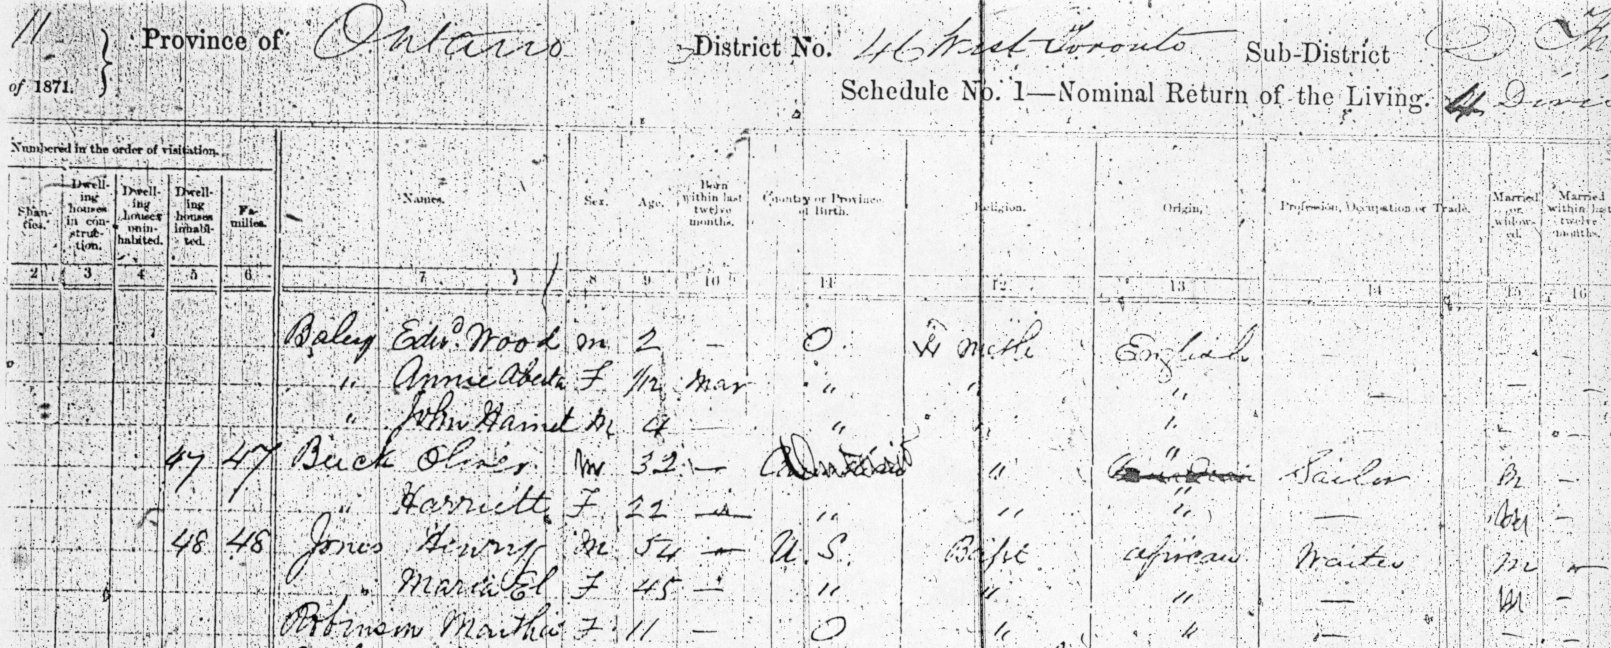 11 Province of Ontario District No. 46 West Toronto Sub-District
of 1871. Schedule No. 1—Nominal Return of the Living. 4
Numbered in the order of visitation.
Shan-ties. Dwell-ing houses in con-struc-tion. Dwell-ing houses unin-habited. Dwell-ing houses inhabi-ted. Fa-milies. Names. Sex. Age. Born within last twelve months. Country or Province of Birth. Religion. Origin. Profession, Occupation or Trade. Married or widow-ed. Married within last twelve months.
2 3 4 5 6 7 8 9 10 11 12 13 14 15 16
Edwd. Wood m 2 — O. Meth English —
" Annie F 1/12 Mar " " " — — —
" John M 4 — " " " —
47 47 Oliver m 32 — Ontario " " Sailor M —
" Harriett F 22 — " " " — M —
48 48 Jones Henry M 54 — U.S. Bapt African Waiter M —
" Maria El F 45 — " " " — M —
Robinson Martha F 11 — O " " — — —